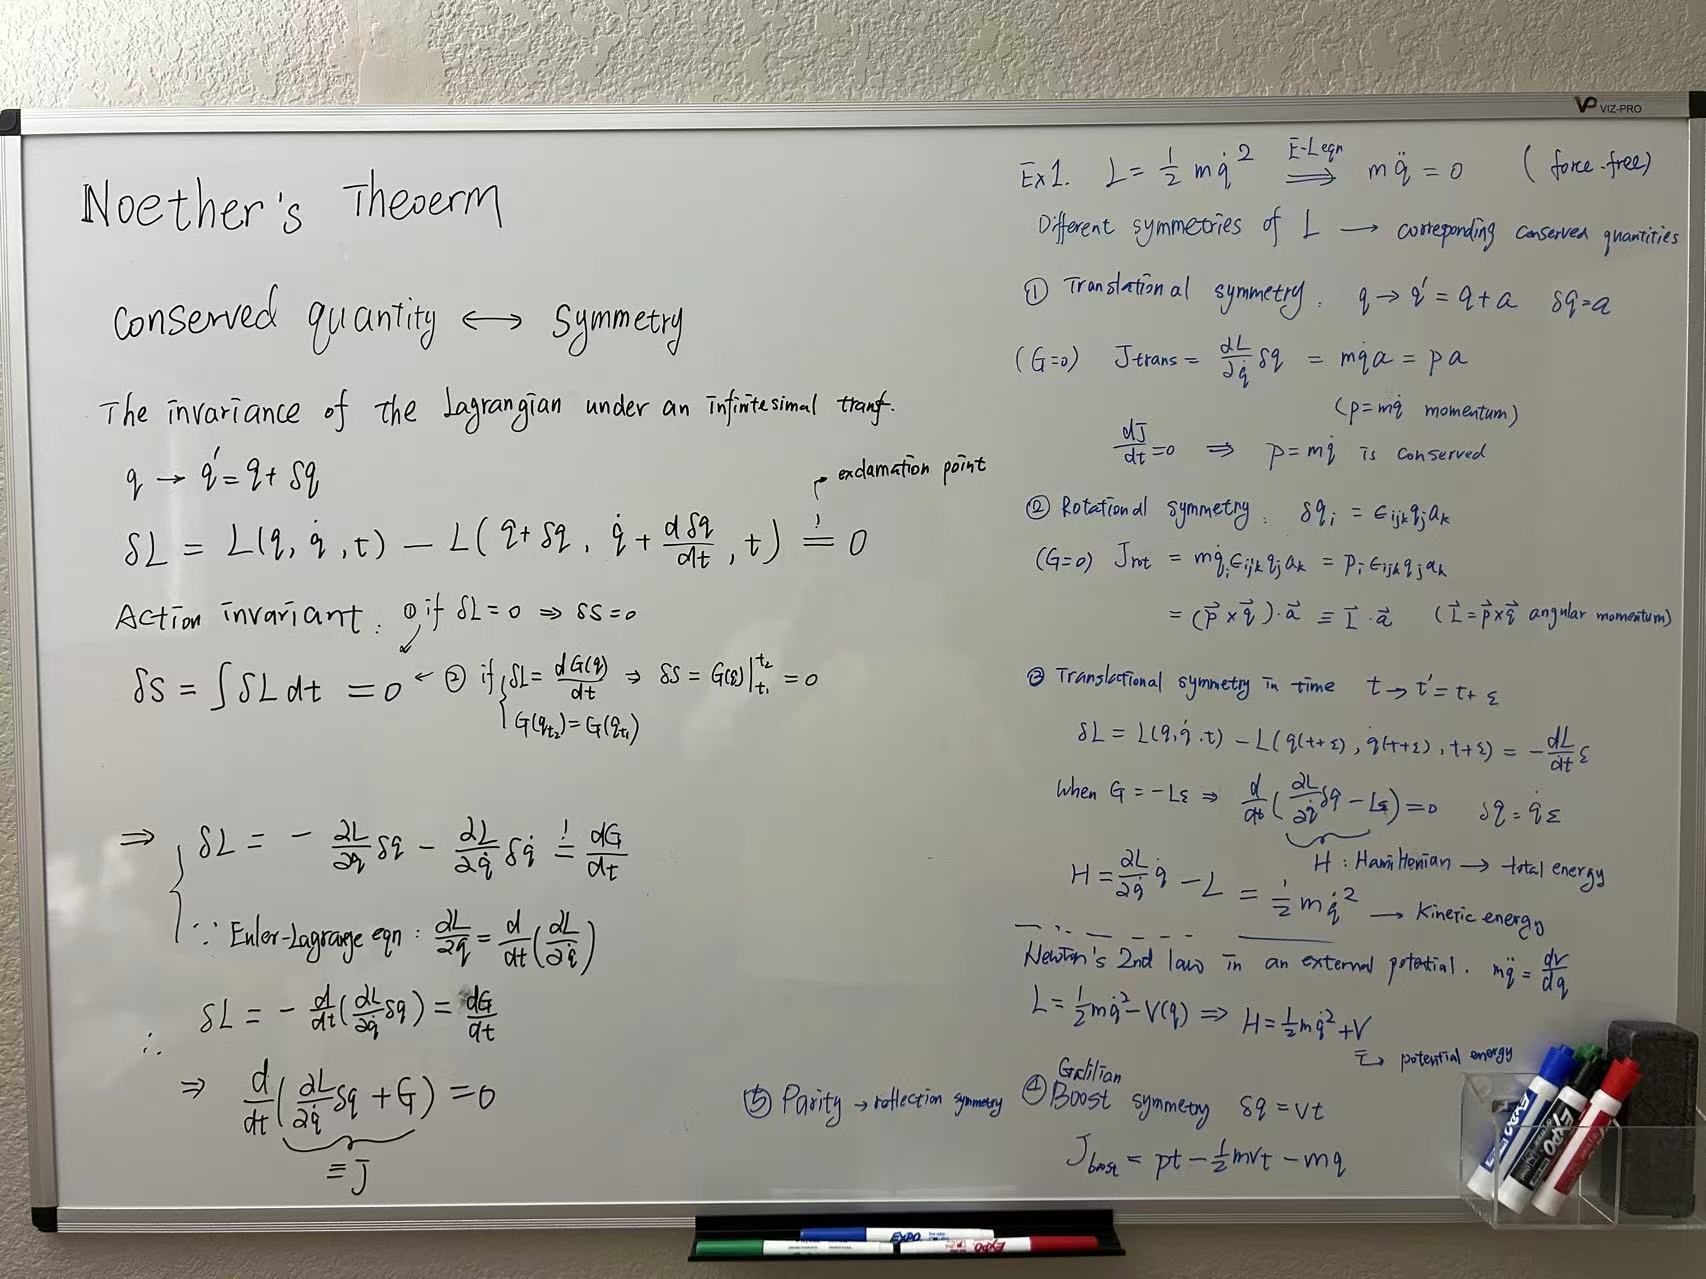 VP VIZ-PRO
Noether's Theoerm
conserved quantity ↔ symmetry
The invariance of the Lagrangian under an infinitesimal tranf.
q → q' = q + δq
exclamation point
δL = L(q, q̇, t) − L(q + δq, q̇ + dδq/dt, t) =! 0
Action invariant: ① if δL = 0 ⇒ δS = 0
δS = ∫ δL dt = 0 ← ② if { δL = dG(q)/dt ⇒ δS = G(q)|_{t₁}^{t₂} = 0
G(q_{t₂}) = G(q_{t₁})
⇒ { δL = − ∂L/∂q δq − ∂L/∂q̇ δq̇ =! dG/dt
∵ Euler-Lagrange eqn: ∂L/∂q = d/dt(∂L/∂q̇)
∴ δL = − d/dt(∂L/∂q̇ δq) = dG/dt
⇒ d/dt(∂L/∂q̇ δq + G) = 0
≡ J
Ex1. L = 1/2 m q̇² ⟹ (E-L eqn) m q̈ = 0 (force-free)
Different symmetries of L → correponding conserved quantities
① Translational symmetry: q → q' = q + a δq = a
(G=0) J_trans = ∂L/∂q̇ δq = m q̇ a = p a
(p = m q̇ momentum)
dJ/dt = 0 ⇒ p = m q̇ is conserved
② Rotational symmetry: δq_i = ε_ijk q_j a_k
(G=0) J_rot = m q̇_i ε_ijk q_j a_k = p_i ε_ijk q_j a_k
= (p⃗ × q⃗) · a⃗ ≡ L⃗ · a⃗ (L⃗ = p⃗ × q⃗ angular momentum)
③ Translational symmetry in time t → t' = t + ε
δL = L(q, q̇, t) − L(q(t+ε), q̇(t+ε), t+ε) = − dL/dt ε
When G = −Lε ⇒ d/dt(∂L/∂q̇ δq − Lε) = 0 δq = q̇ ε
H: Hamiltonian → total energy
H = ∂L/∂q̇ q̇ − L = 1/2 m q̇² → kinetic energy
Newton's 2nd law in an external potential. m q̈ = dv/dq
L = 1/2 m q̇² − V(q) ⇒ H = 1/2 m q̇² + V
↳ potential energy
④ Galilian Boost symmetry δq = vt
J_boost = pt − 1/2 mvt − mq
⑤ Parity → reflection symmetry
EXPO
EXPO
EXPO
EXPO